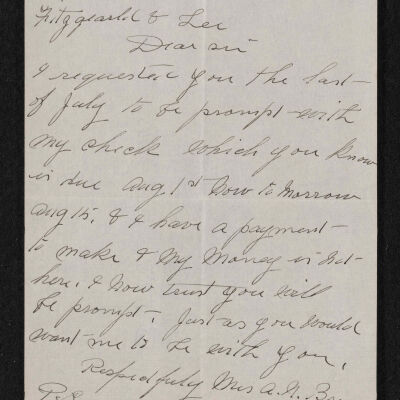 Fitzgearld & Lee
Dear sir
I requested you the last
of July to be prompt with
my check which you know
is due Aug 1st Now to morrow
Aug 15. & I have a payment
to make & My Money is not
here. & Now trust you will
be prompt. Just as you would
want me to be with you.
Respectfuly Mrs A. N.